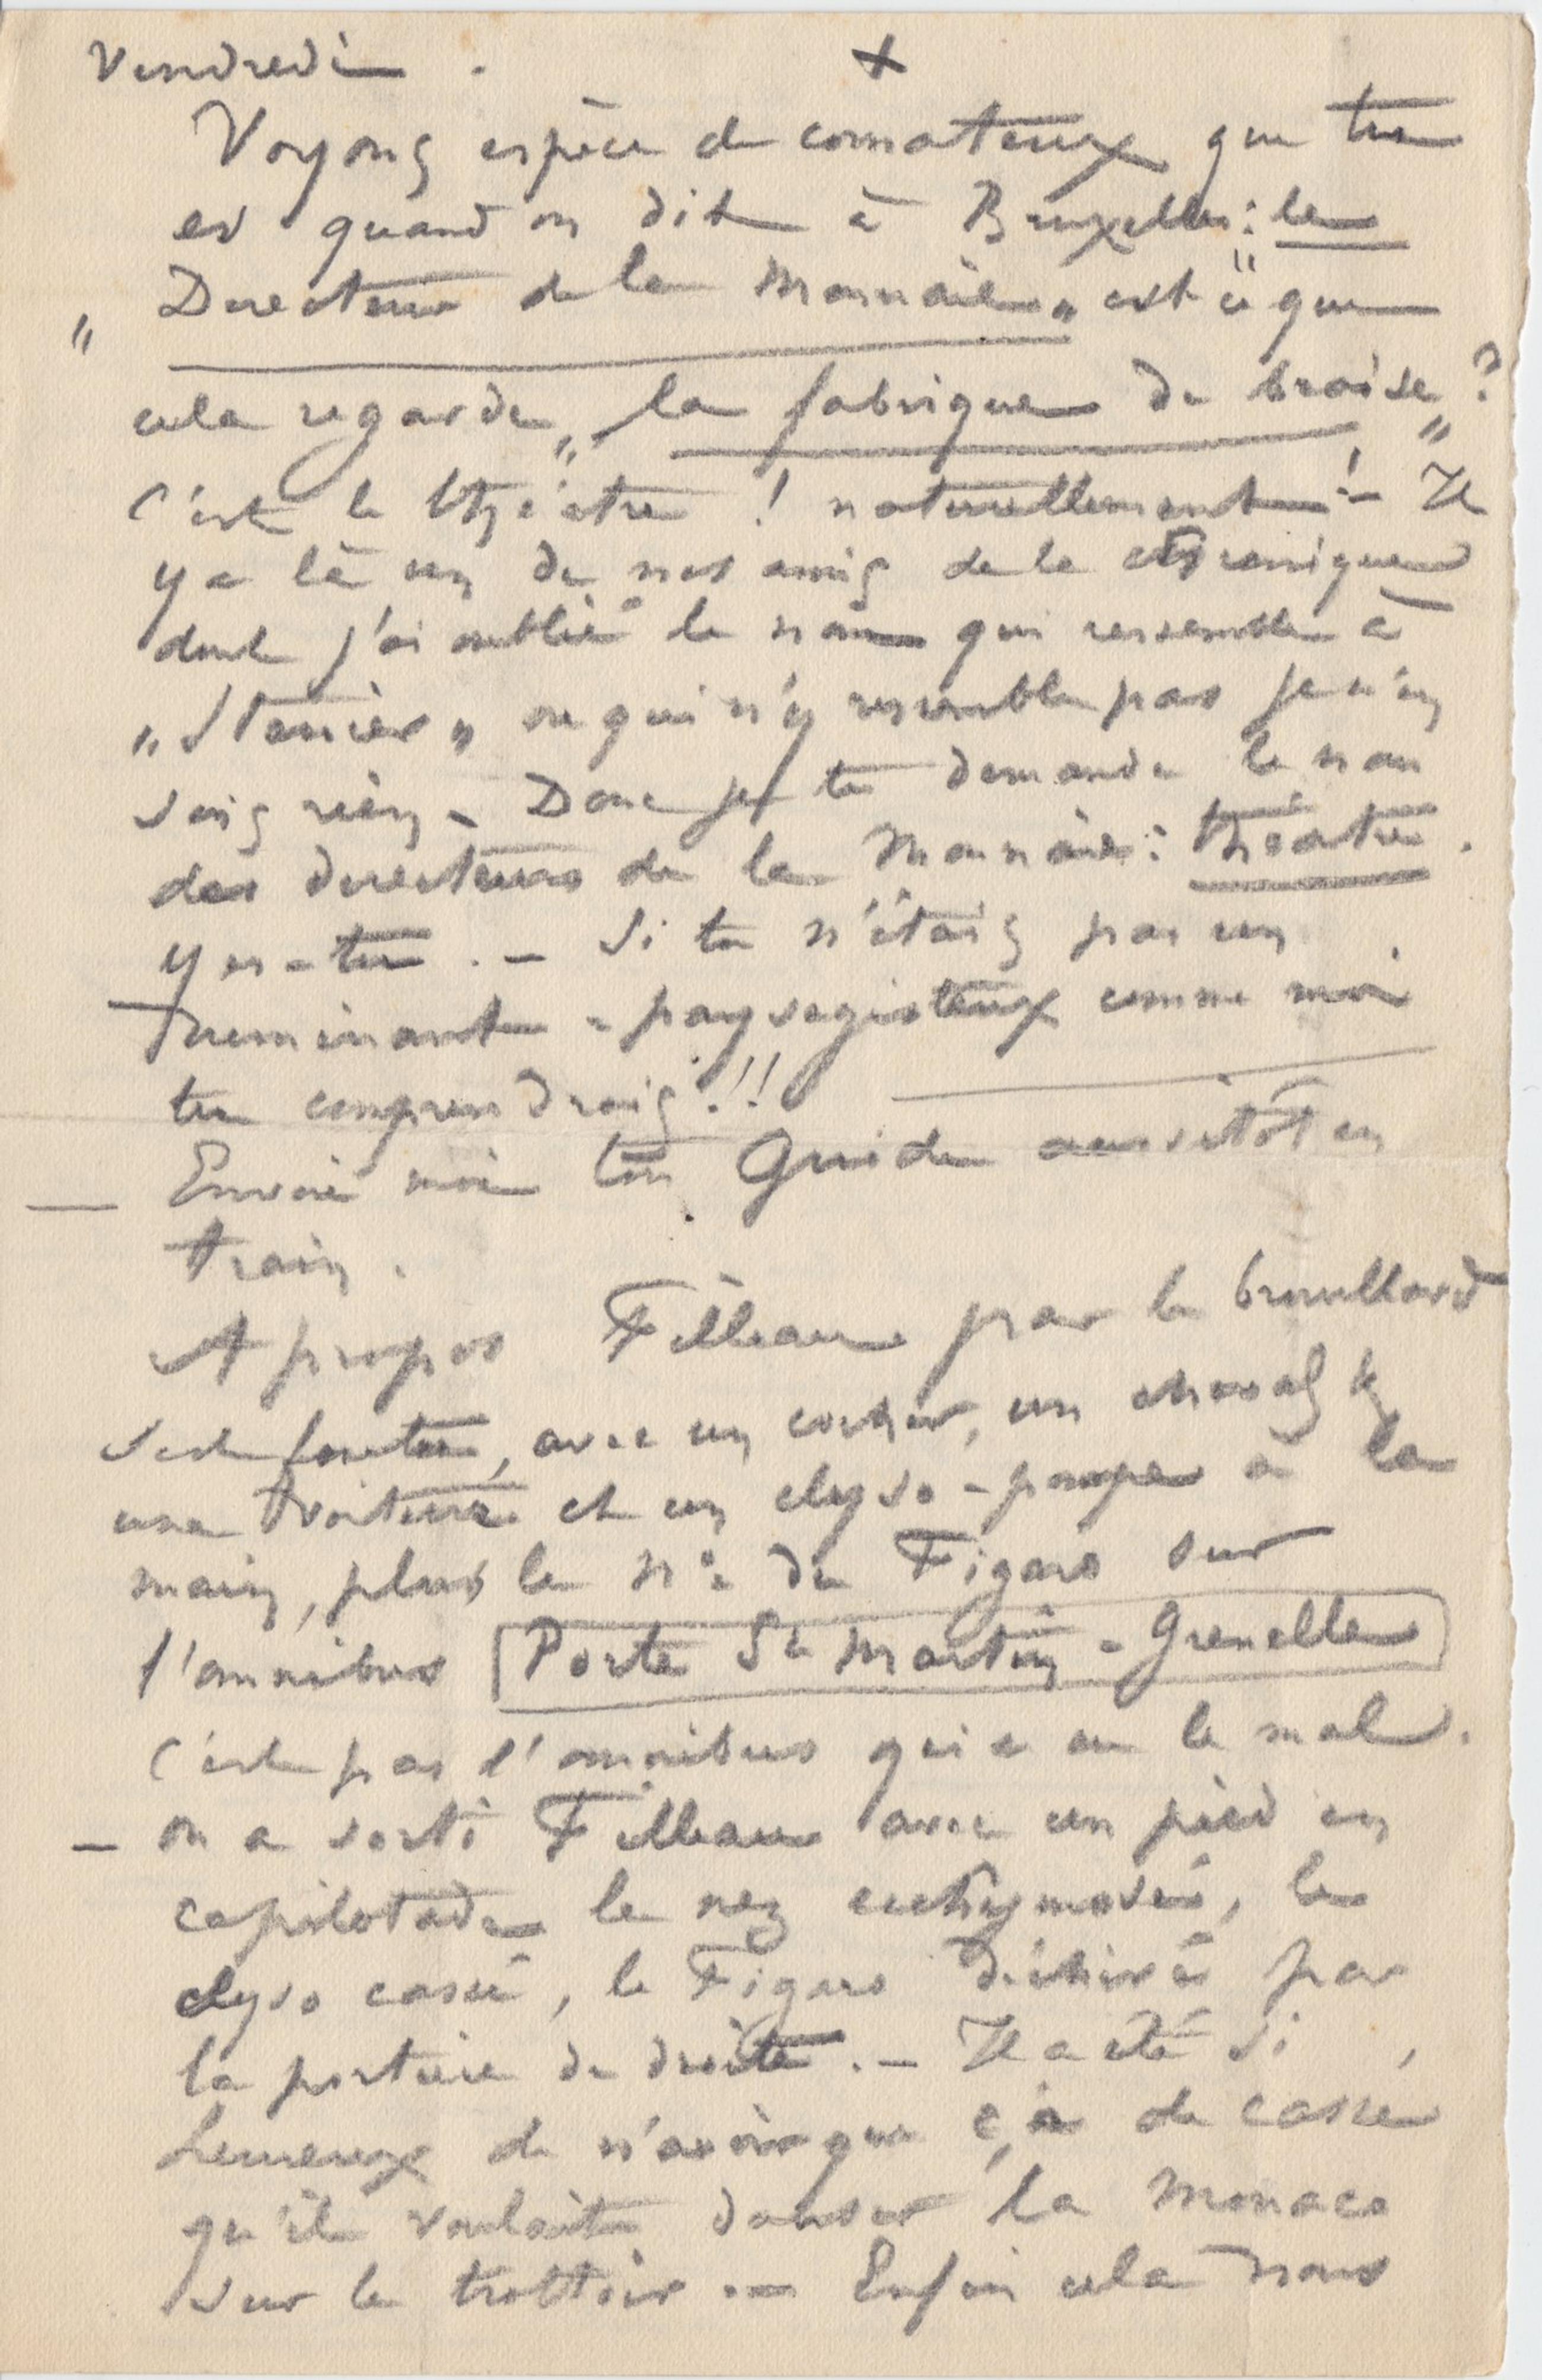 Vendredi. +
Voyons espèce de comateux que tu
es quand on dit à Bruxelles : le
" Directeur de la Monnaie " est ce que
cela regarde " la fabrique de braise " ?
C'est le théâtre ! naturellement ! – Il
y a là un de nos amis de la Chronique
dont j'ai oublié le nom qui ressemble à
" Stenier " ou qui n'y ressemble pas je n'en
sais rien – Donc je te demande le nom
des directeurs de la Monnaie : théâtre.
Y es-tu. – Si tu n'étais pas un
ruminant-paysagisteux comme moi
tu comprendrais !!
– Envoie moi ton Guide aussitôt en
train.
A propos Filleau par le brouillard
s'est foutu, avec un cocher, un cheval &
une voiture et un clyso-pompe à la
main, plus le n° du Figaro sur
l'omnibus Porte St Martin - Grenelle
C'est pas l'omnibus qui a eu le mal.
– on a sorti Filleau avec un pied en
capilotade le nez ecchymosé, le
clyso cassé, le Figaro déchiré par
la portière de droite. – Il a été si
heureux de n'avoir que ça de cassé
qu'il voulait danser la Monaco
sur le trottoir. – Enfin cela nous